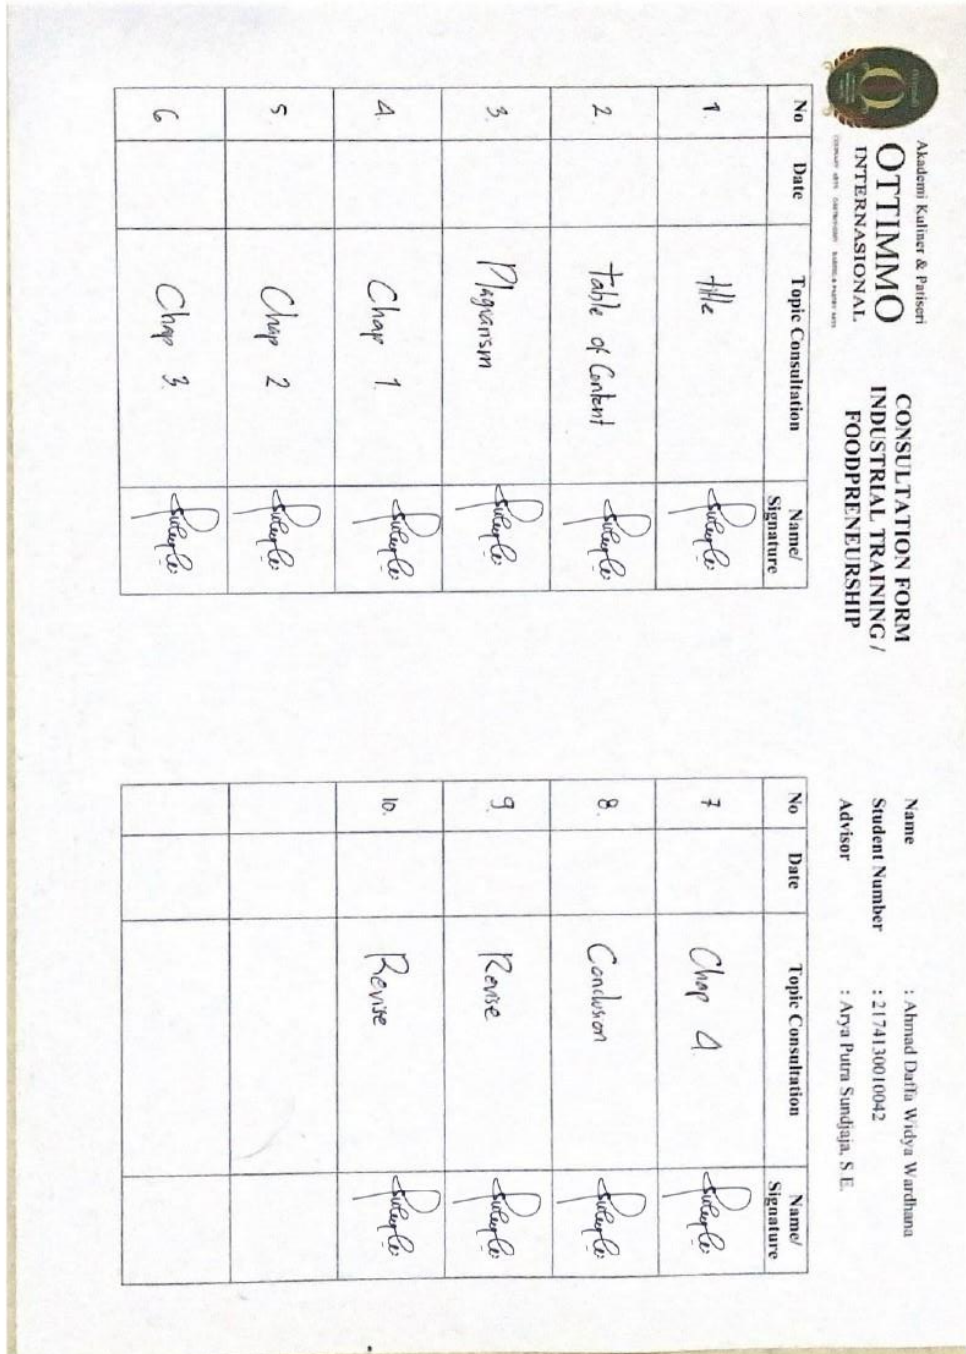 Akademi Kuliner & Patiseri
OTTIMMO
INTERNASIONAL
CONSULTATION FORM
INDUSTRIAL TRAINING /
FOODPRENEURSHIP
Name : Ahmad Daffa Widya Wardhana
Student Number : 2174130010042
Advisor : Arya Putra Sundjaja, S.E.
No Date Topic Consultation Name/
Signature
1. title
2. Table of Content
3. Plagiarism
4. Chap 1.
5 Chap 2
6 Chap 3.
No Date Topic Consultation Name/
Signature
7 Chap 4.
8. Conclusion
9. Revise
10. Revise